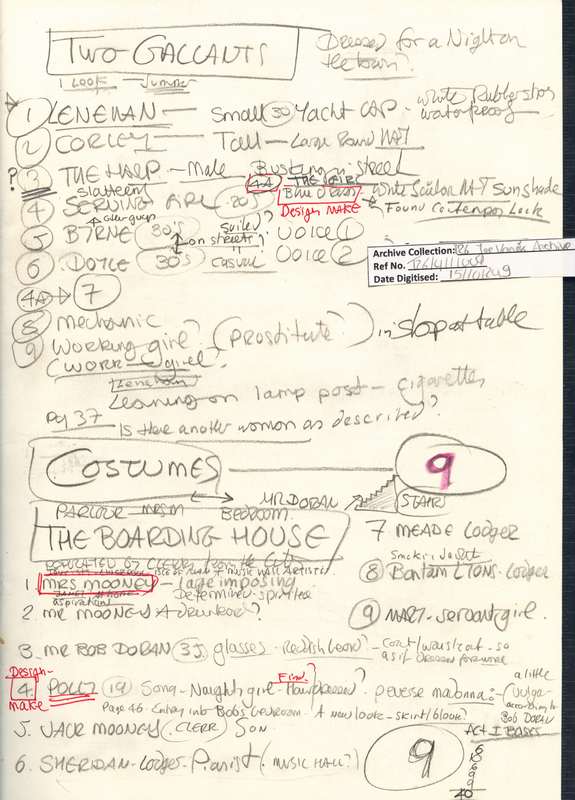 TWO GALLANTS
Dressed for a Night on
the town?
1 LOOK - Jumper
1 LENEHAN - Small 30 Yacht CAP - white Rubber slips
waterproof
2 CORLEY - Tall - Large Round HAT
? 3 THE HARP - Male Busking on street
slattern 4A THE GIRL
4 SERVING GIRL (20's) Blue dress White Sailor HAT Sunshade
Design MAKE Found Contemporary Look
5 BYRNE 30's suited? VOICE 1
on streets?
6 DOYLE 30's casual VOICE 2
Archive Collection: T26 Joe Vanek Archive
Ref No.
Date Digitised:
4A → 7
8 Mechanic
9 Working girl? (Prostitute?) in shop at table
(WORK girl?
Lenehan
Leaning on lamp post - cigarettes
Pg 37
Is there another woman as described?
COSTUMES 9
PARLOUR - MRS M BEDROOM MR DORAN STAIRS
THE BOARDING HOUSE
7 MEADE Lodger
POPULATED BY CLERKS FROM THE CITY
8 Bantam LYONS - Lodger
1. MRS MOONEY - large imposing
Determined - spirited
aspirations
2. MR MOONEY A drunkard?
9 MARY - servant girl.
3. MR BOB DORAN 35 glasses - Reddish beard? - coat/waistcoat - so
as if dressed for work
Design - make
4. POLLY 19 Song - Naughty girl - perverse madonna?
a little
vulgar
according to
Bob Doran
Page 46 - Entry into Bob's bedroom - A new look - skirt/blouse?
5. JACK MOONEY (CLERK) SON
6. SHERIDAN - Lodger - Pianist (MUSIC HALL?)
9
ACT I
9
9
40